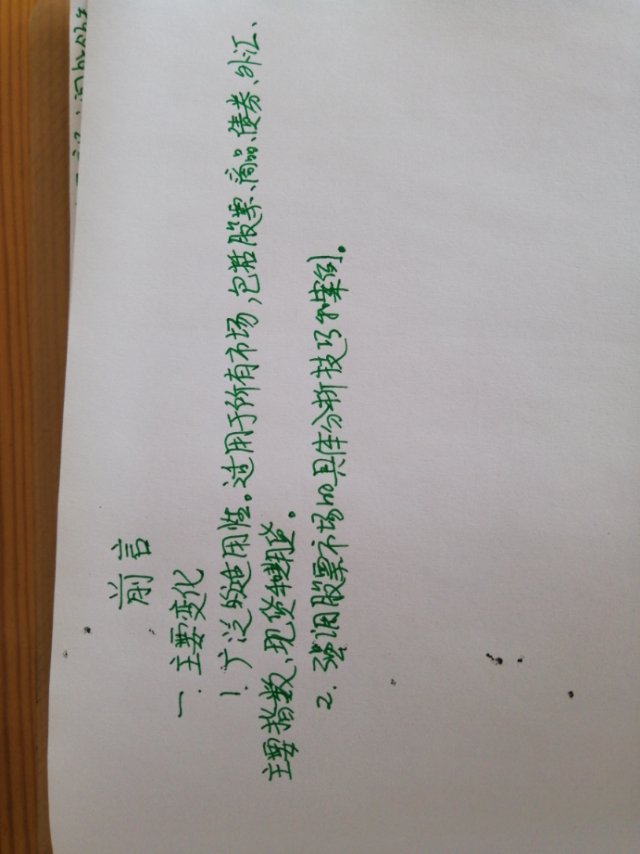 前言
一. 主要变化
1. 广泛的适用性。适用于所有市场,包括股票、商品、债券、外汇、
主要指数、现货和期货。
2. 强调股票市场的具体分析技巧和案例。